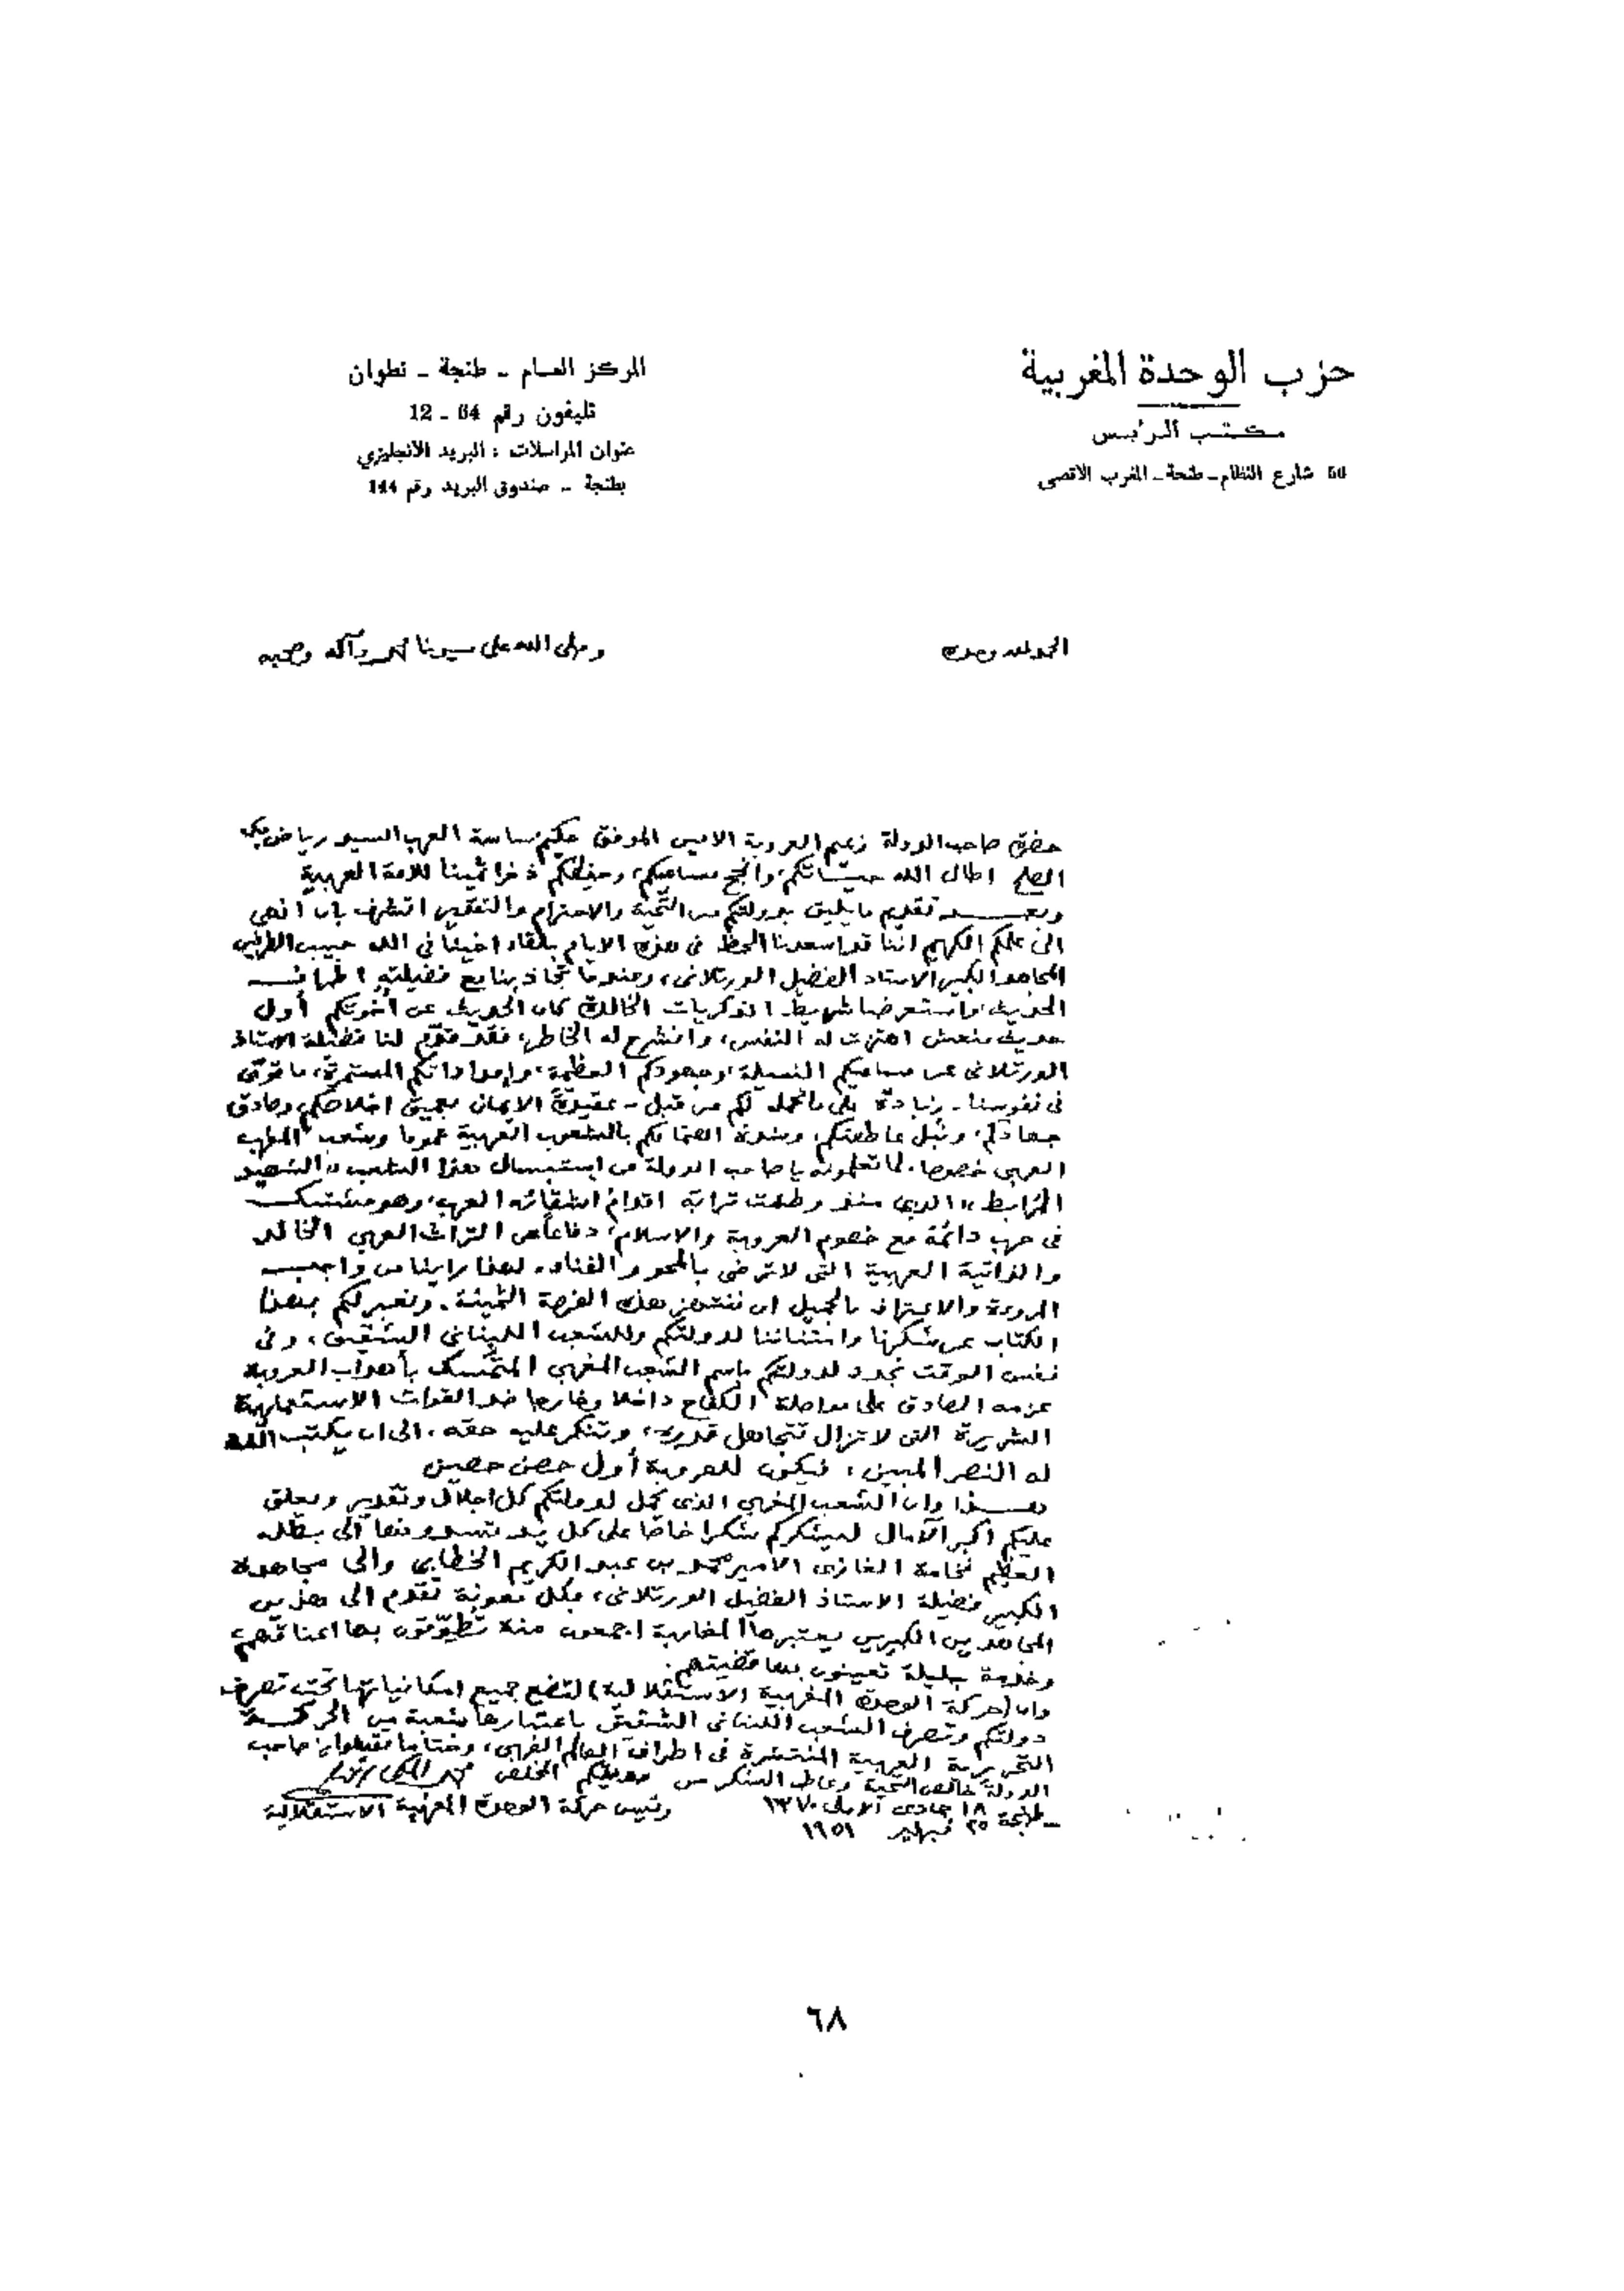 حزب الوحدة المغربية
مكتب الرئيس
50 شارع النظام - طنجة - المغرب الاقصى
المركز العام - طنجة - تطوان
تليفون رقم 64 - 12
عنوان المراسلات : البريد الانجليزي
بطنجة - صندوق البريد رقم 144
الحمد لله وحده
وصلى الله على سيدنا محمد وآله وصحبه
حضرة صاحب الدولة زعيم العروبة الامين الموفق حكيم ساسة العرب السيد رياض بك
الصلح اطال الله حياتكم، وانجح مساعيكم، وحفظكم ذخرا ثمينا للامة العربية
وبعد تقديم ما يليق بدولتكم من التحية والاحترام والتقدير اتشرف بان انهي
الى علمكم الكريم اننا قد اسعدنا الحظ في هذه الايام بلقاء اخينا في الله حبيب الطرفين
المجاهد الكبير الاستاذ الفضيل الورتلاني، وعندما تجاذبنا مع فضيلته اطراف
الحديث، واستعرضنا شريط الذكريات الخالدة كان الحديث عن اخوتكم أول
حديث منعش اهتزت له النفس، وانشرح له الخاطر، فقد قدم لنا فضيلة الاستاذ
الورتلاني عن مساعيكم النبيلة، وجهودكم العظيمة، وامداداتكم المستمرة، ما قوى
في نفوسنا - زيادة على ما نحمله لكم من قبل - عقيدة الايمان بعميق اخلاصكم، وصادق
جهادكم، ونبل عاطفتكم، وشدة اهتمامكم بالشعوب العربية عموما وبشعب المغرب
العربي خصوصا. لما تعلمونه يا صاحب الدولة من استبسال هذا الشعب "الشهيد
المرابط" الذي منذ وطئت ترابه اقدام اشقائه العرب، وهو مشتبك
في حرب دائمة مع خصوم العروبة والاسلام، دفاعا عن التراث العربي الخالد
والذاتية العربية التي لا ترضى بالمحو والفناء. لهذا راينا من واجب
المروءة والاعتراف بالجميل ان ننتهز هذه الفرصة الثمينة. ونعبر لكم بهذا
الكتاب عن شكرنا وامتناننا لدولتكم وللشعب اللبناني الشقيق، وفي
نفس الوقت نجدد لدولتكم باسم الشعب المغربي المتمسك بأهداب العروبة
عزمه الصادق على مواصلة الكفاح داخلا وخارجا ضد القوات الاستعمارية
الشريرة التي لا تزال تتجاهل قدره، وتنكر عليه حقه، الى ان يكتب الله
له النصر المبين، فيكون للعروبة أول حصن حصين
هذا وان الشعب المغربي الذي يحمل لدولتكم كل اجلال وتقدير ويعلق
عليكم اكبر الآمال ليشكركم شكرا خاصا على كل يد تسدونها الى بطله
العظيم فخامة الغازي الامير محمد بن عبد الكريم الخطابي والى مجاهده
الكبير فضيلة الاستاذ الفضيل الورتلاني، وكل معونة تقدم الى هذين
المجاهدين الكبيرين يعتبرها المغاربة اجمعون منة تطوقون بها اعناقهم
وخدمة جليلة تعينون بها قضيتهم.
وان (حركة الوحدة المغربية الاستقلالية) لتضع جميع امكانياتها تحت تصرف
دولتكم وتصرف الشعب اللبناني الشقيق باعتبارها شعبة من الحركة
التحريرية العربية المنتشرة في اطراف العالم العربي، وختاما تقبلوا يا صاحب
الدولة خالص التحية وعاطر الشكر من صديقكم المخلص
طنجة ١٨ جمادى الاولى ١٣٧٠
٢٥ فبراير ١٩٥١
رئيس حركة الوحدة المغربية الاستقلالية
٦٨